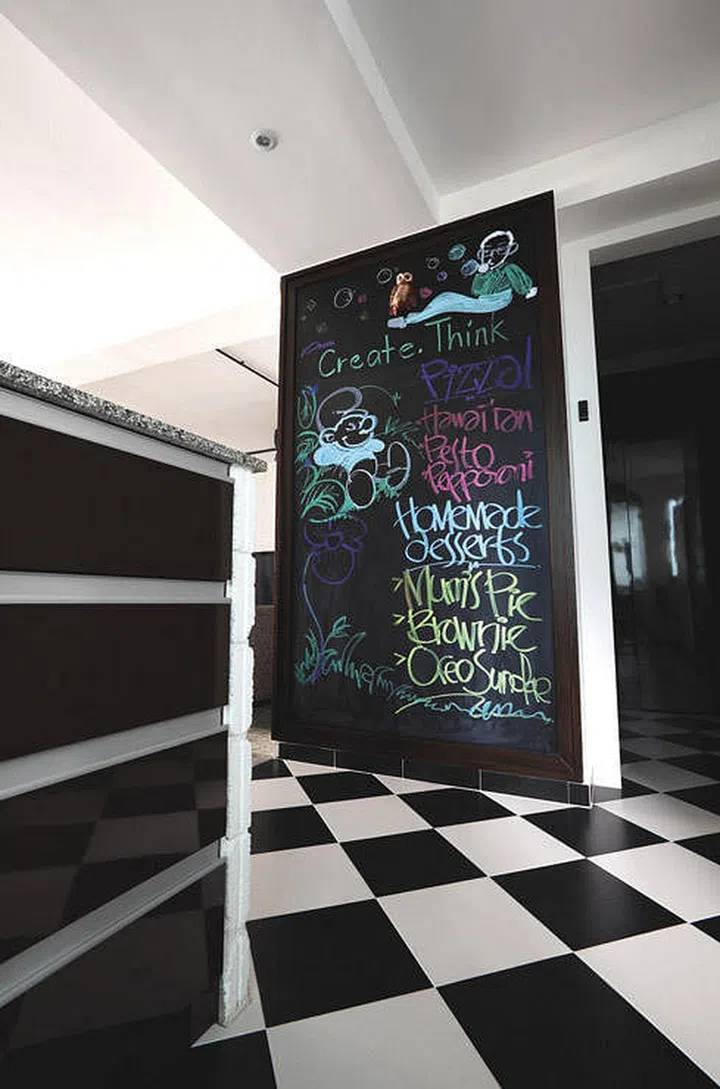 Create. Think
Pizza!
Hawaiian
Pesto
Pepperoni
Homemade
desserts
> Mum's Pie
> Brownie
> Oreo Sundae